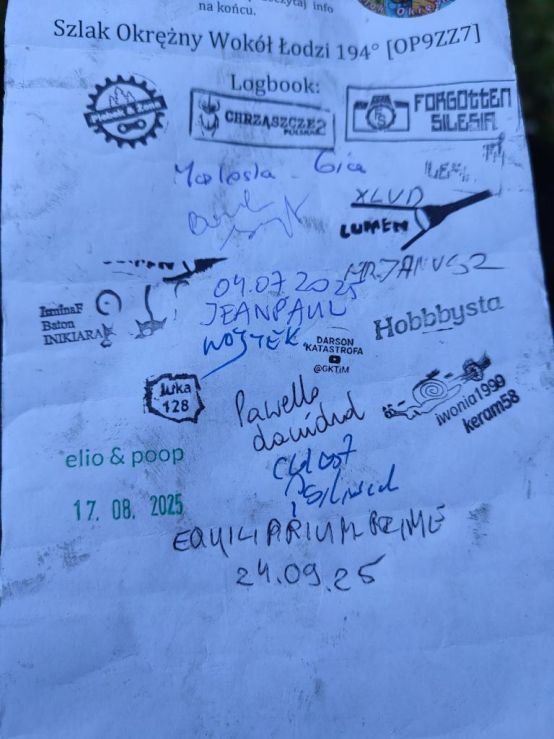 na końcu.
Szlak Okrężny Wokół Łodzi 194° [OP9ZZ7]
Logbook:
CHRZĄSZCZE2
FORGOTTEN
SILESIA
Gia
XLVD
LUMEN
MR.JANUSZ
04.07 2025
JEANPAUL
WOJTEK
IsminaF
Baton
INIKIARA
DARSON
KATASTROFA
@GKTiM
Hobbbysta
luka
128
Pawello
iwonia1999
keram58
elio & poop
17. 08. 2025
24.09.25